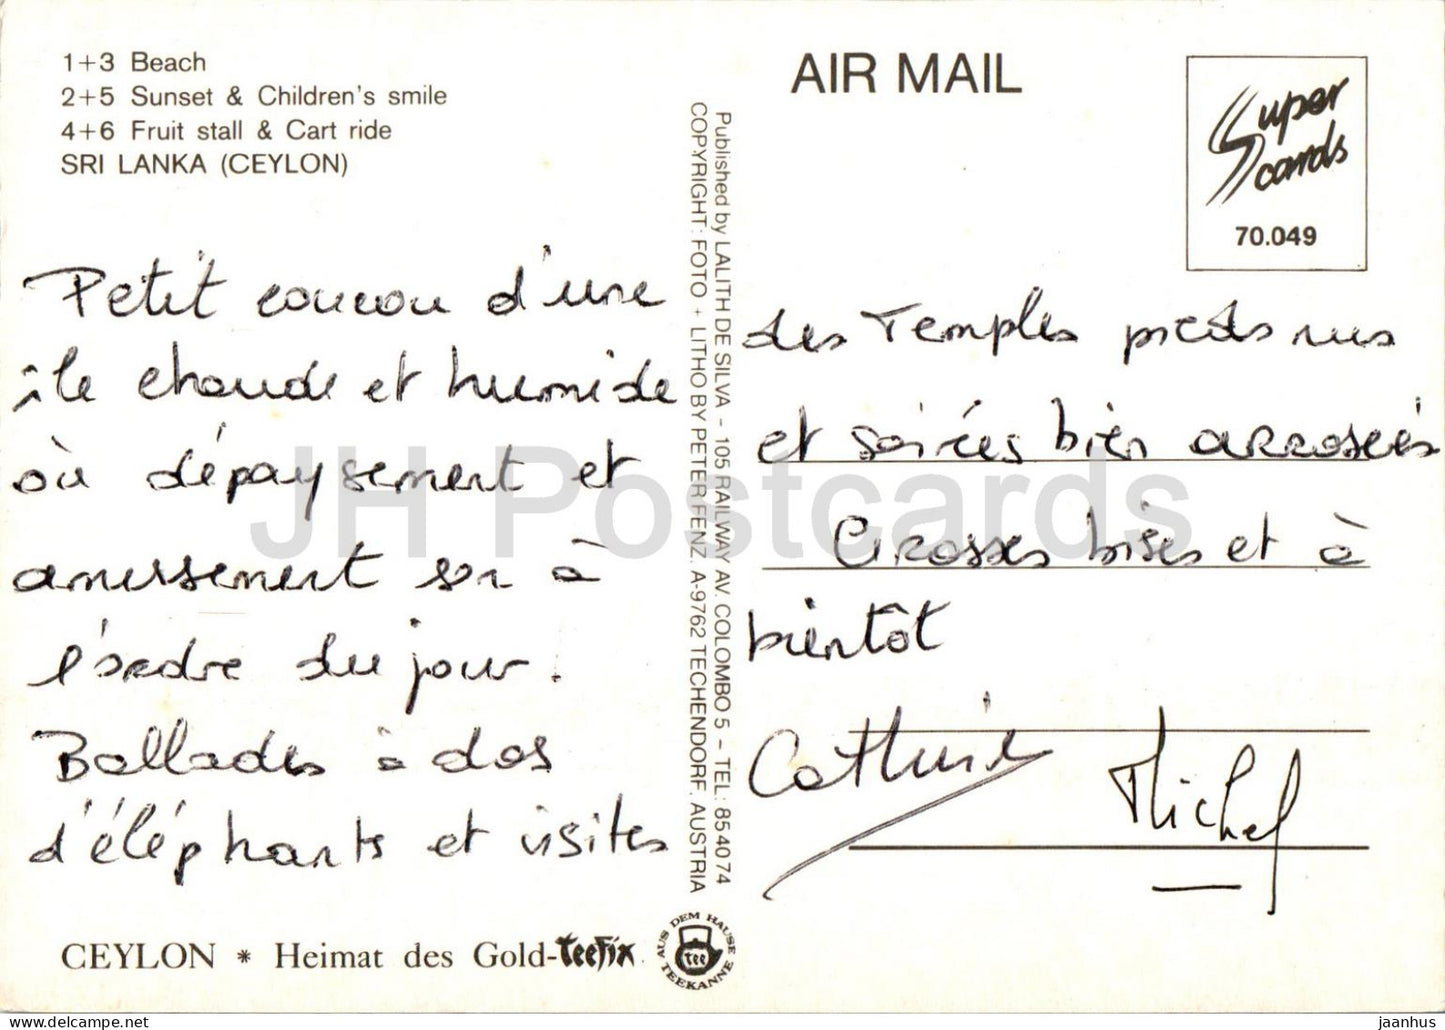 1+3 Beach
2+5 Sunset & Children's smile
4+6 Fruit stall & Cart ride
SRI LANKA (CEYLON)
AIR MAIL
Super
cards
70.049
Petit coucou d'une
île chaude et humide
où dépaysement et
amusement son à
l'ordre du jour.
Ballades à dos
d'éléphants et visites
des Temples pieds nus
et soirées bien arrosées
Grosses bises et à
bientôt
Catherine
Michel
Published by LALITH DE SILVA - 105 RAILWAY AV. COLOMBO 5 - TEL: 854074
COPYRIGHT: FOTO + LITHO BY PETER FENZ. A-9762 TECHENDORF. AUSTRIA
CEYLON * Heimat des Gold-TeeFix
AUS DEM HAUSE TEEKANNE
tee
JH Postcards
jaanhus
https://www.delcampe.net